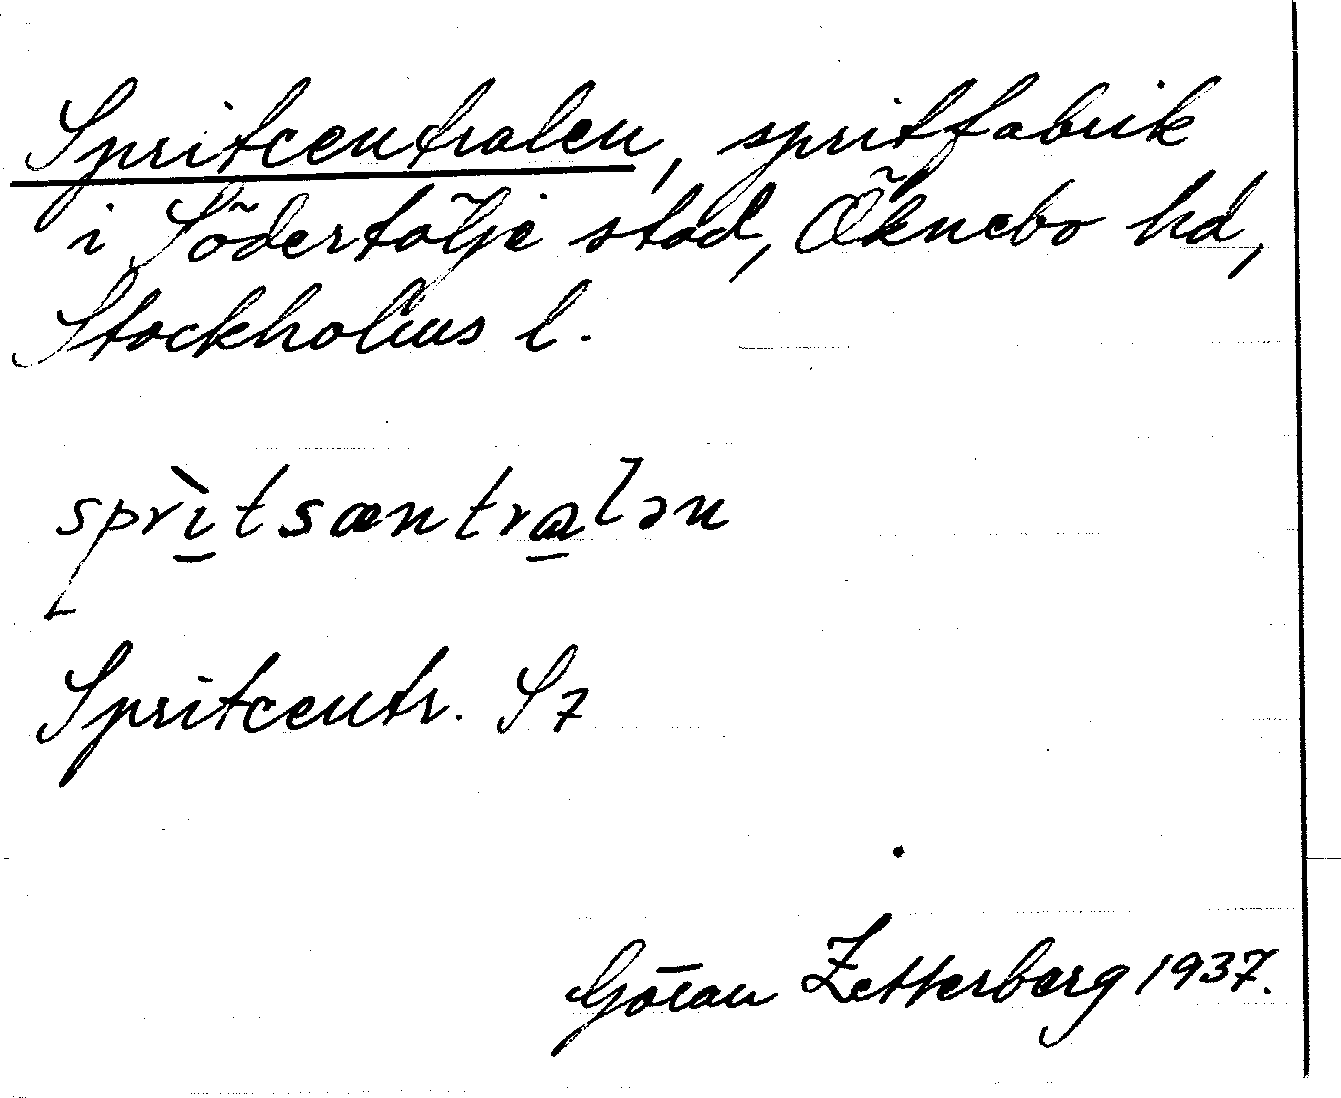 Spritcentralen, spritfabrik
i Södertälje stad, Öknebo hd,
Stockholms l.
sprìtsæntralən
Spritcentr. S7
Götan Zetterberg 1937.